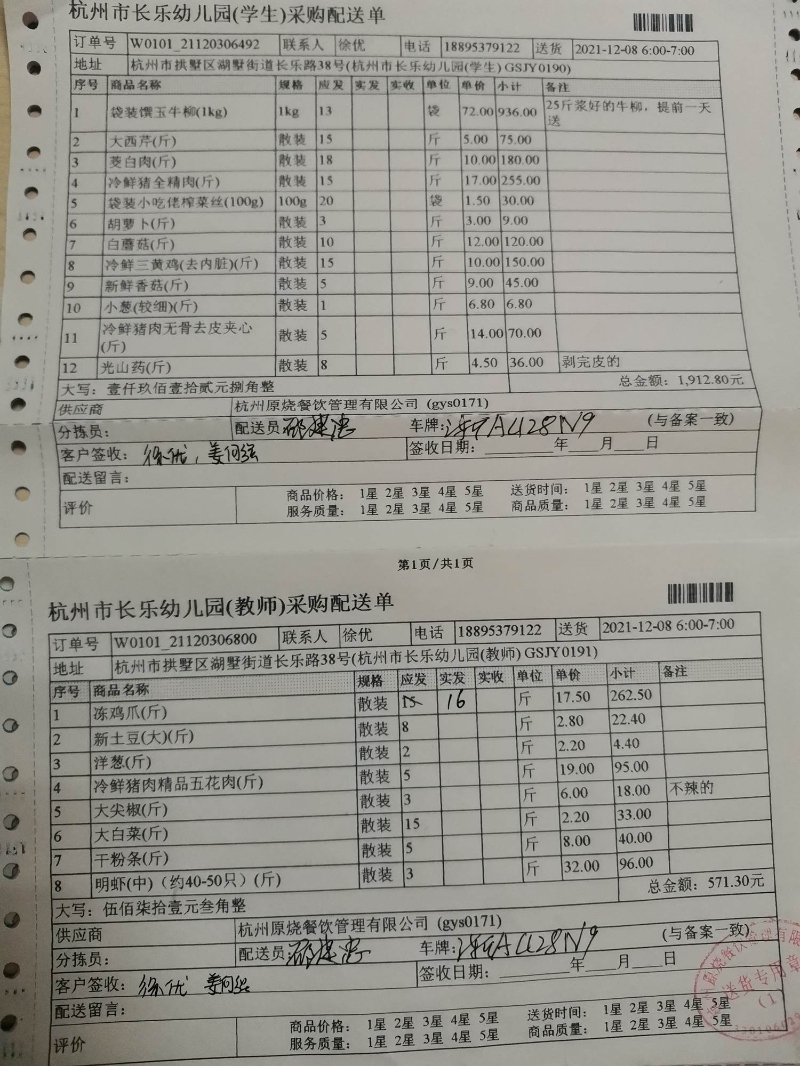 杭州市长乐幼儿园(学生)采购配送单
订单号 W0101_21120306492 联系人 徐优 电话 18895379122 送货 2021-12-08 6:00-7:00
地址 杭州市拱墅区湖墅街道长乐路38号(杭州市长乐幼儿园(学生) GSJY0190)
序号 商品名称 规格 应发 实发 实收 单位 单价 小计 备注
1 袋装馔玉牛柳(1kg) 1kg 13 袋 72.00 936.00 25斤浆好的牛柳，提前一天送
2 大西芹(斤) 散装 15 斤 5.00 75.00
3 茭白肉(斤) 散装 18 斤 10.00 180.00
4 冷鲜猪全精肉(斤) 散装 15 斤 17.00 255.00
5 袋装小吃佬榨菜丝(100g) 100g 20 袋 1.50 30.00
6 胡萝卜(斤) 散装 3 斤 3.00 9.00
7 白蘑菇(斤) 散装 10 斤 12.00 120.00
8 冷鲜三黄鸡(去内脏)(斤) 散装 15 斤 10.00 150.00
9 新鲜香菇(斤) 散装 5 斤 9.00 45.00
10 小葱(较细)(斤) 散装 1 斤 6.80 6.80
11 冷鲜猪肉无骨去皮夹心(斤) 散装 5 斤 14.00 70.00
12 光山药(斤) 散装 8 斤 4.50 36.00 剥完皮的
大写：壹仟玖佰壹拾贰元捌角整 总金额：1,912.80元
供应商 杭州原烧餐饮管理有限公司 (gys0171)
分拣员： 配送员 车牌：浙AU28N9 (与备案一致)
客户签收：徐优，姜何强 签收日期：______年____月____日
配送留言：
评价 商品价格： 1星 2星 3星 4星 5星 送货时间： 1星 2星 3星 4星 5星
服务质量： 1星 2星 3星 4星 5星 商品质量： 1星 2星 3星 4星 5星
第1页/共1页
杭州市长乐幼儿园(教师)采购配送单
订单号 W0101_21120306800 联系人 徐优 电话 18895379122 送货 2021-12-08 6:00-7:00
地址 杭州市拱墅区湖墅街道长乐路38号(杭州市长乐幼儿园(教师) GSJY0191)
序号 商品名称 规格 应发 实发 实收 单位 单价 小计 备注
1 冻鸡爪(斤) 散装 15 16 斤 17.50 262.50
2 新土豆(大)(斤) 散装 8 斤 2.80 22.40
3 洋葱(斤) 散装 2 斤 2.20 4.40
4 冷鲜猪肉精品五花肉(斤) 散装 5 斤 19.00 95.00
5 大尖椒(斤) 散装 3 斤 6.00 18.00 不辣的
6 大白菜(斤) 散装 15 斤 2.20 33.00
7 干粉条(斤) 散装 5 斤 8.00 40.00
8 明虾(中)（约40-50只）(斤) 散装 3 斤 32.00 96.00
大写：伍佰柒拾壹元叁角整 总金额：571.30元
供应商 杭州原烧餐饮管理有限公司 (gys0171)
分拣员： 配送员 车牌：浙AU28N9 (与备案一致)
客户签收：徐优 姜何强 签收日期：______年____月____日
配送留言：
评价 商品价格： 1星 2星 3星 4星 5星 送货时间： 1星 2星 3星 4星 5星
服务质量： 1星 2星 3星 4星 5星 商品质量： 1星 2星 3星 4星 5星
送货专用章
(1)